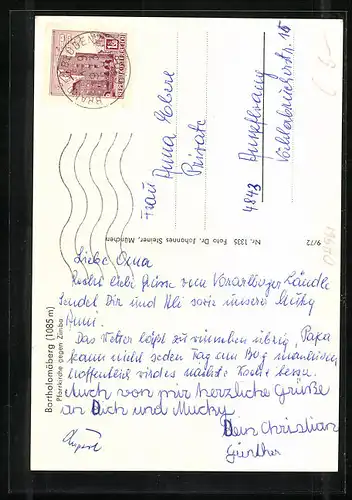 Frau Anna Ebere
Private
4843 Ampflwang
Vöcklabruckerstr. 15
Bartholomäberg (1085 m)
Pfarrkirche gegen Zimba
Nr. 1335 Foto Dr. Johannes Steiner, München
9/72
Liebe Oma
Recht liebe Grüsse vom Vorarlberger Ländle
sendet Dir und sowie unsere Mutky
Das Wetter läßt zu wünschen übrig, Papa
kann nicht jeden Tag am Berg
hoffentlich wird es nächste Woche besser.
Auch von mir herzliche Grüße
an Dich und Mucky
Dein Christian
Günther